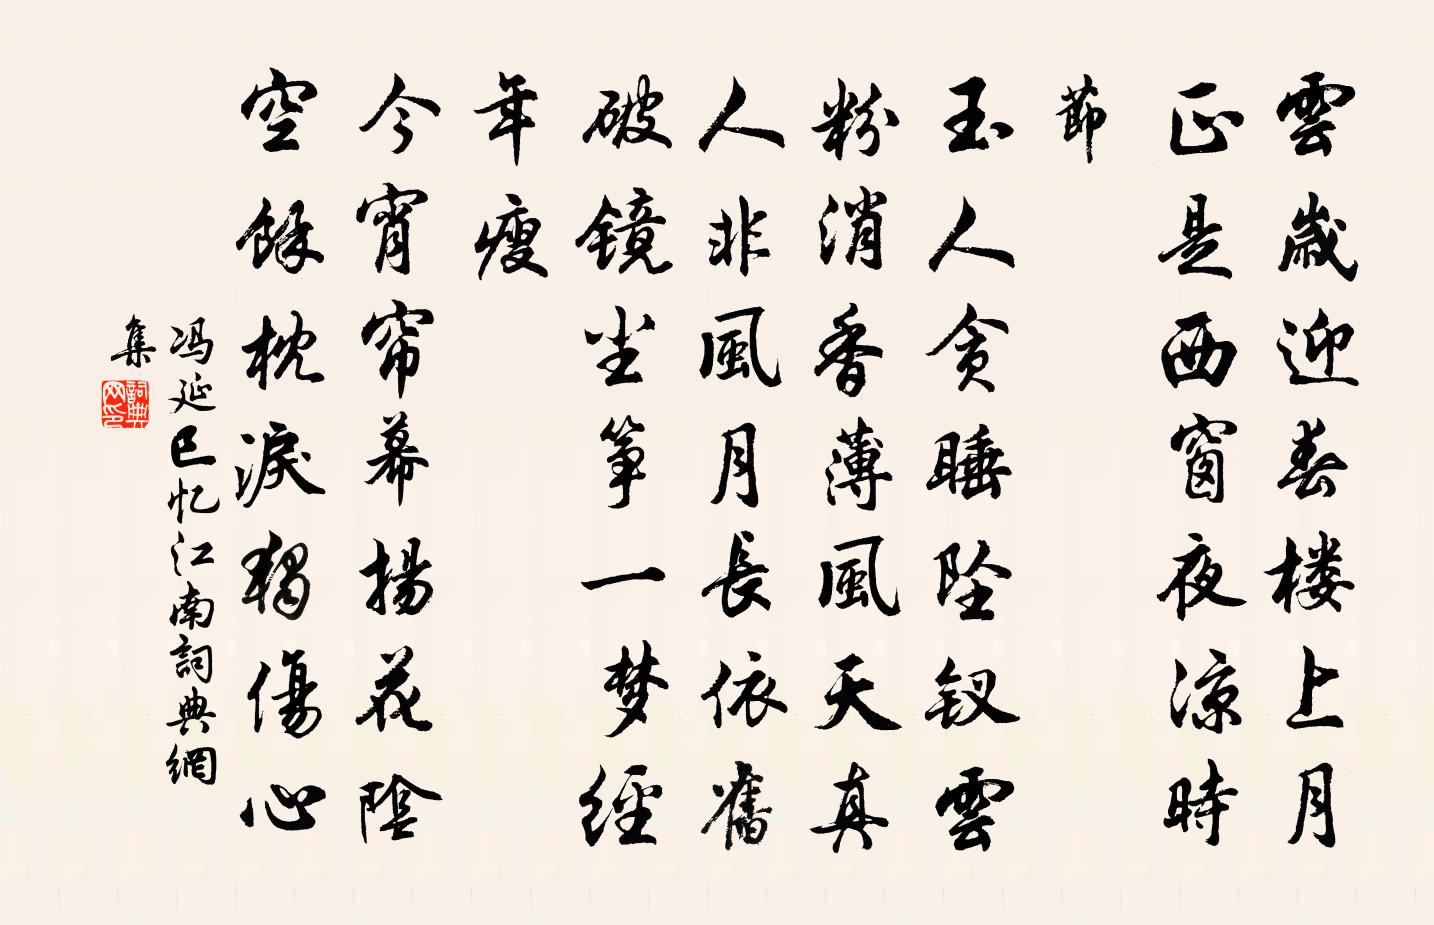 雲歲迎春楼上月
正是西窗夜涼時
節
玉人贪睡坠钗雲
粉消香薄風天真
人非風月長依舊
破镜尘筝一梦經
年瘦
今宵帘幕揚花陰
空餘枕淚獨傷心
冯延巳忆江南詞典網
集
詞典网印